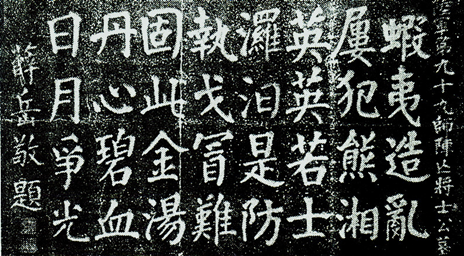 軍第九十九師陣亡將士公墓
蝦夷造亂
屢犯熊湘
英英若士
汨是防
執戈冒難
固此金湯
丹心碧血
日月爭光
薛岳敬題